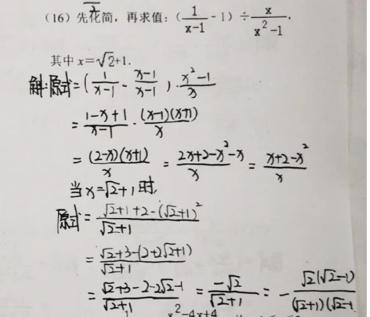 (16) 先化简，再求值：(1/(x-1) - 1) ÷ x/(x²-1).
其中 x=√2+1.
解:原式=(1/(x-1) - (x-1)/(x-1)) · (x²-1)/x
= (1-x+1)/(x-1) · (x-1)(x+1)/x
= (2-x)(x+1)/x = (2x+2-x²-x)/x = (x+2-x²)/x
当x=√2+1时,
原式= (√2+1+2-(√2+1)²)/(√2+1)
= (√2+3-(2+2√2+1))/(√2+1)
= (√2+3-2-2√2-1)/(√2+1) = -√2/(√2+1) = - √2(√2-1)/(√2+1)(√2-1
x²-4x+4